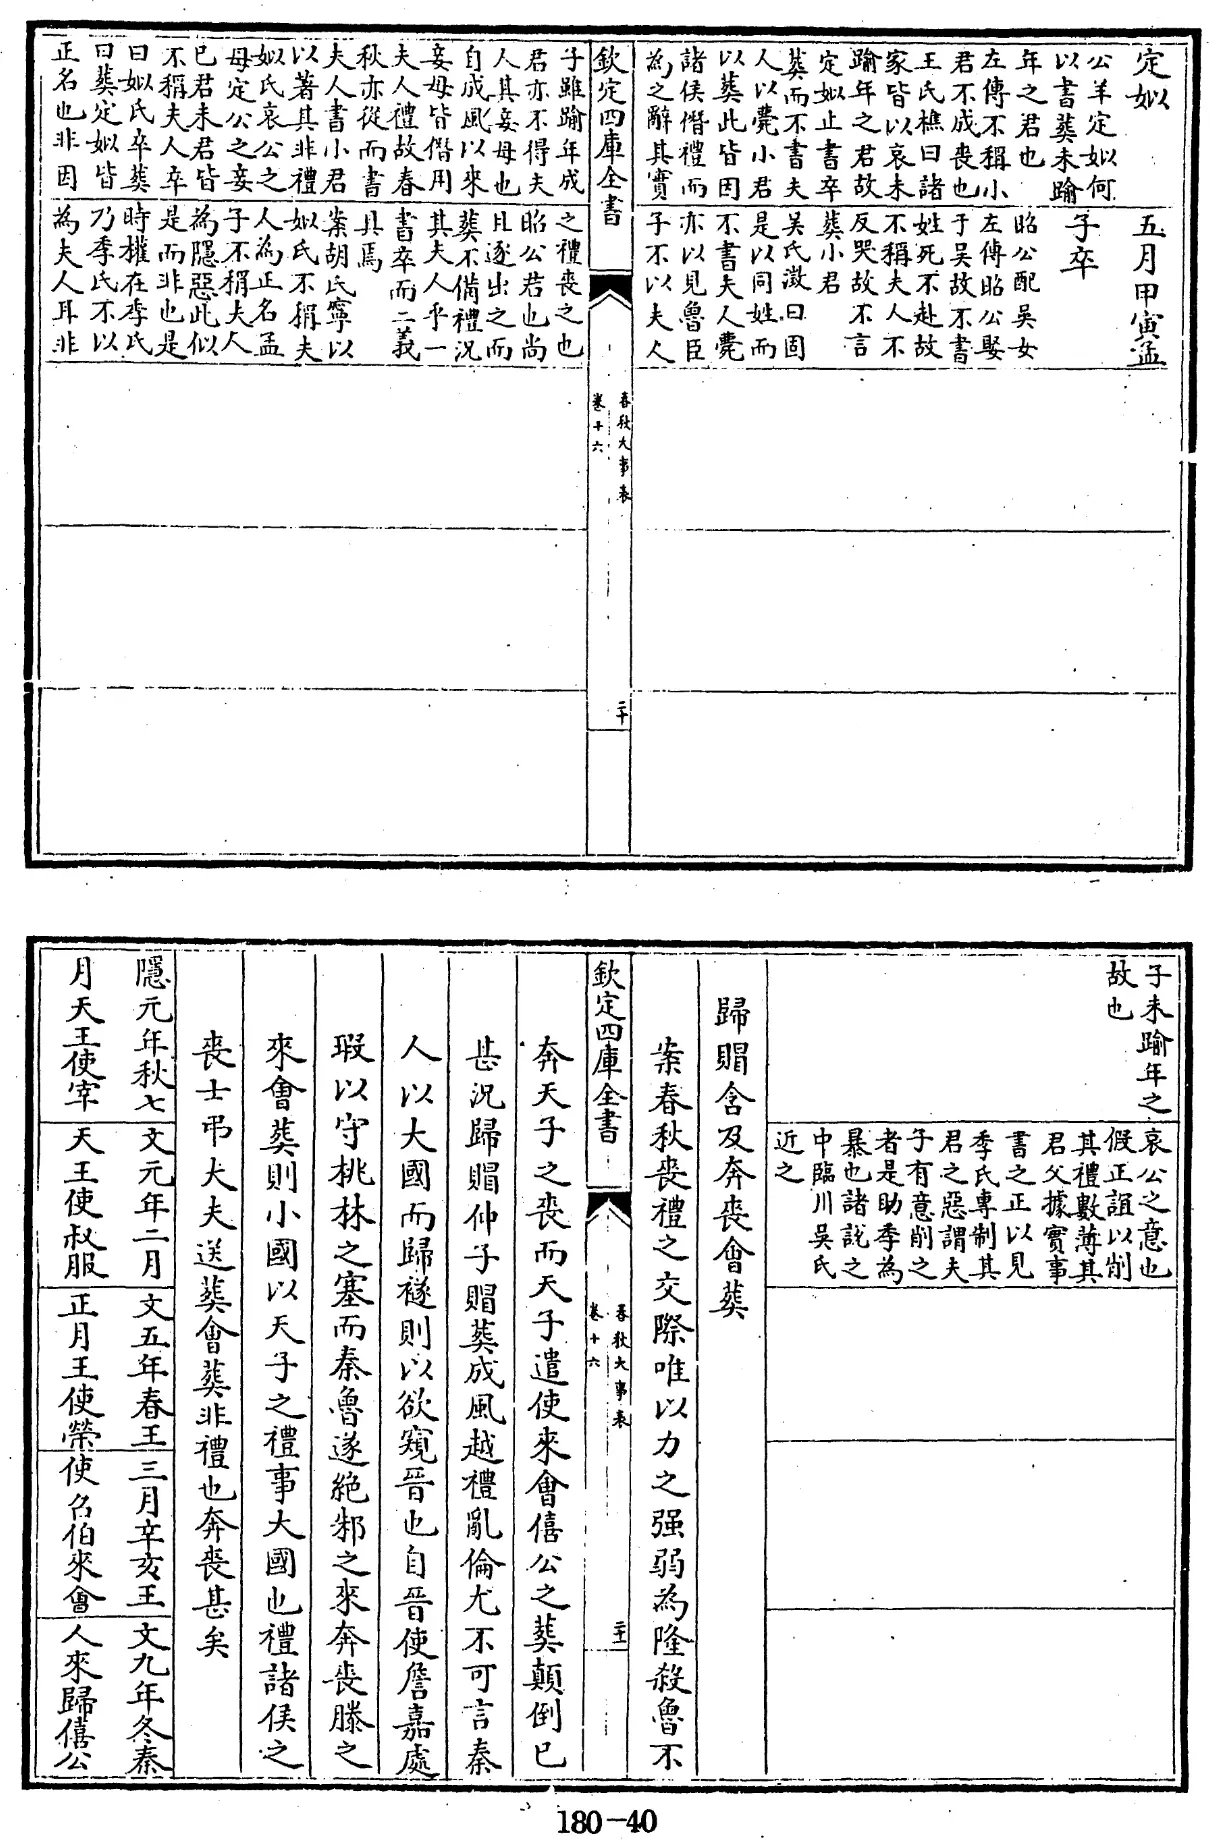 定姒
公羊定姒何
以書葬未踰
年之君也
左傳不稱小
君不成喪也
王氏樵曰諸
家皆以哀未
踰年之君故
定姒止書卒
葬而不書夫
人以薨小君
以葬此皆因
諸侯僭禮而
為之辭其實
五月甲寅孟
子卒
昭公配吳女
左傳昭公娶
于吳故不書
姓死不赴故
不稱夫人不
反哭故不言
葬小君
吳氏澂曰固
是以同姓而
不書夫人薨
亦以見魯臣
子不以夫人
欽定四庫全書
春秋大事表
卷十六
二十
子雖踰年成
君亦不得夫
人其妾母也
自成風以來
妾母皆僭用
夫人禮故春
秋亦從而書
夫人書小君
以著其非禮
姒氏哀公之
母定公之妾
已君未君皆
不稱夫人卒
曰姒氏卒葬
曰葬定姒皆
正名也非因
之禮喪之也
昭公君也尚
且逐出之而
葬不備禮況
其夫人乎一
書卒而二義
具焉
案胡氏寧以
姒氏不稱夫
人為正名孟
子不稱夫人
為隱惡此似
是而非也是
時權在季氏
乃季氏不以
為夫人耳非
子未踰年之
故也
哀公之意也
假正誼以削
其禮數薄其
君父據實事
書之正以見
季氏專制其
君之惡謂夫
子有意削之
者是助季為
暴也諸說之
中臨川吳氏
近之
歸賵含及奔喪會葬
案春秋喪禮之交際唯以力之强弱為隆殺魯不
欽定四庫全書
春秋大事表
卷十六
二十一
奔天子之喪而天子遣使來會僖公之葬顛倒已
甚況歸賵仲子賵葬成風越禮亂倫尤不可言秦
人以大國而歸襚則以欲窺晉也自晉使詹嘉處
瑕以守桃林之塞而秦魯遂絕邾之來奔喪滕之
來會葬則小國以天子之禮事大國也禮諸侯之
喪士弔大夫送葬會葬非禮也奔喪甚矣
隱元年秋七
月天王使宰
文元年二月
天王使叔服
文五年春王
正月王使榮
三月辛亥王
使召伯來會
文九年冬秦
人來歸僖公
180-40